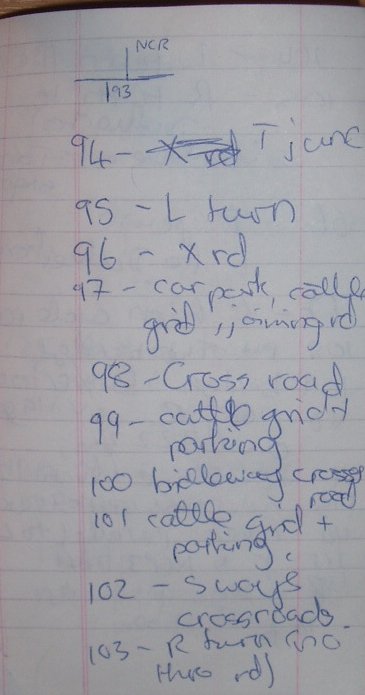 NCR
93
94 - X rd T junc
95 - L turn
96 - X rd
97 - car park, cattle
grid, joining rd
98 - Cross road
99 - cattle grid +
parking
100 bridleway crosses
road
101 cattle grid +
parking.
102 - 5 ways
crossroads.
103 - R turn (no
thro rd)